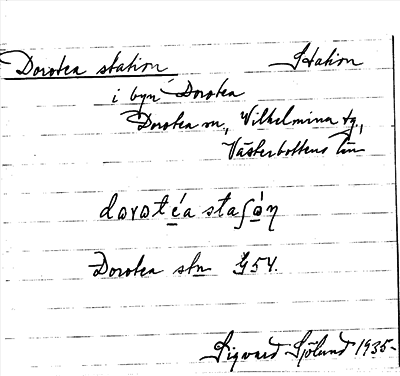 Dorotea station Station
i byn Dorotea
Dorotea sn, Vilhelmina tg,
Västerbottens län
dorotéa staʃón
Dorotea stn G54.
Sigvard Sjölund 1935-